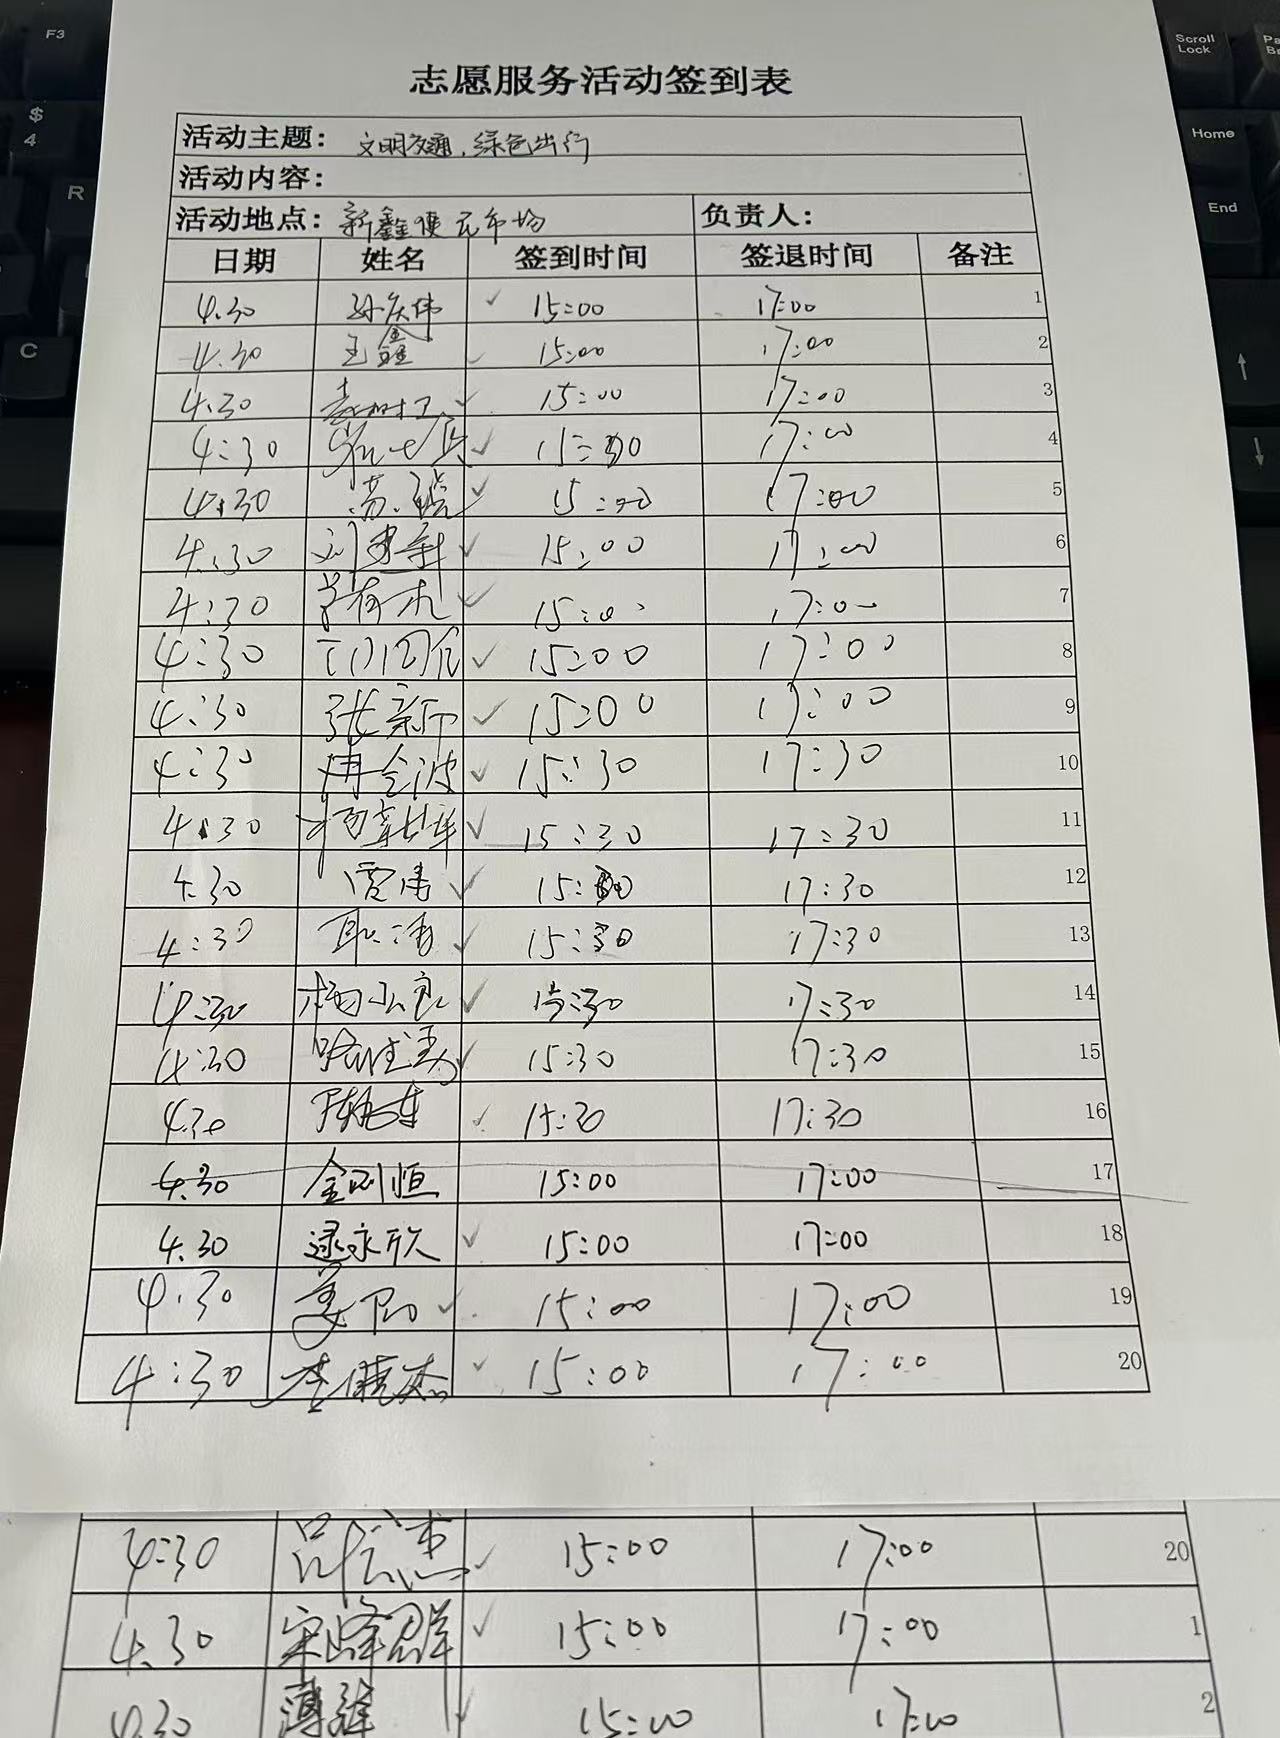 F3
$
4
R
C
Scroll
Lock
Home
End
志愿服务活动签到表
活动主题： 文明交通，绿色出行
活动内容：
活动地点：新鑫便民市场 负责人：
日期 姓名 签到时间 签退时间 备注
4.30 孙庆伟 ✓ 15:00 17:00 1
4.30 王鑫 15:00 17:00 2
4.30 15:00 17:00 3
4:30 ✓ 17:00 4
4.30 苏 ✓ 15:00 17:00 5
4:30 刘建新 ✓ 15:00 17:00 6
4:30 ✓ 15:00 17:00 7
4:30 ✓ 15:00 17:00 8
4:30 张新 ✓ 15:00 17:00 9
4:30 冉会波 ✓ 15:30 17:30 10
4:30 杨 ✓ 15:30 17:30 11
4.30 雷涛 ✓ 15:30 17:30 12
4:30 耿涛 ✓ 15:30 17:30 13
4:30 ✓ 15:30 17:30 14
4:30 ✓ 15:30 17:30 15
4.30 ✓ 15:30 17:30 16
4.30 金刚恒 15:00 17:00 17
4.30 逯永欣 ✓ 15:00 17:00 18
4.30 姜 ✓ 15:00 17:00 19
4:30 李健杰 ✓ 15:00 17:00 20
4:30 吕 ✓ 15:00 17:00 20
4.30 宋峰群 ✓ 15:00 17:00 1
4.30 薄 ✓ 15:00 17:00 2